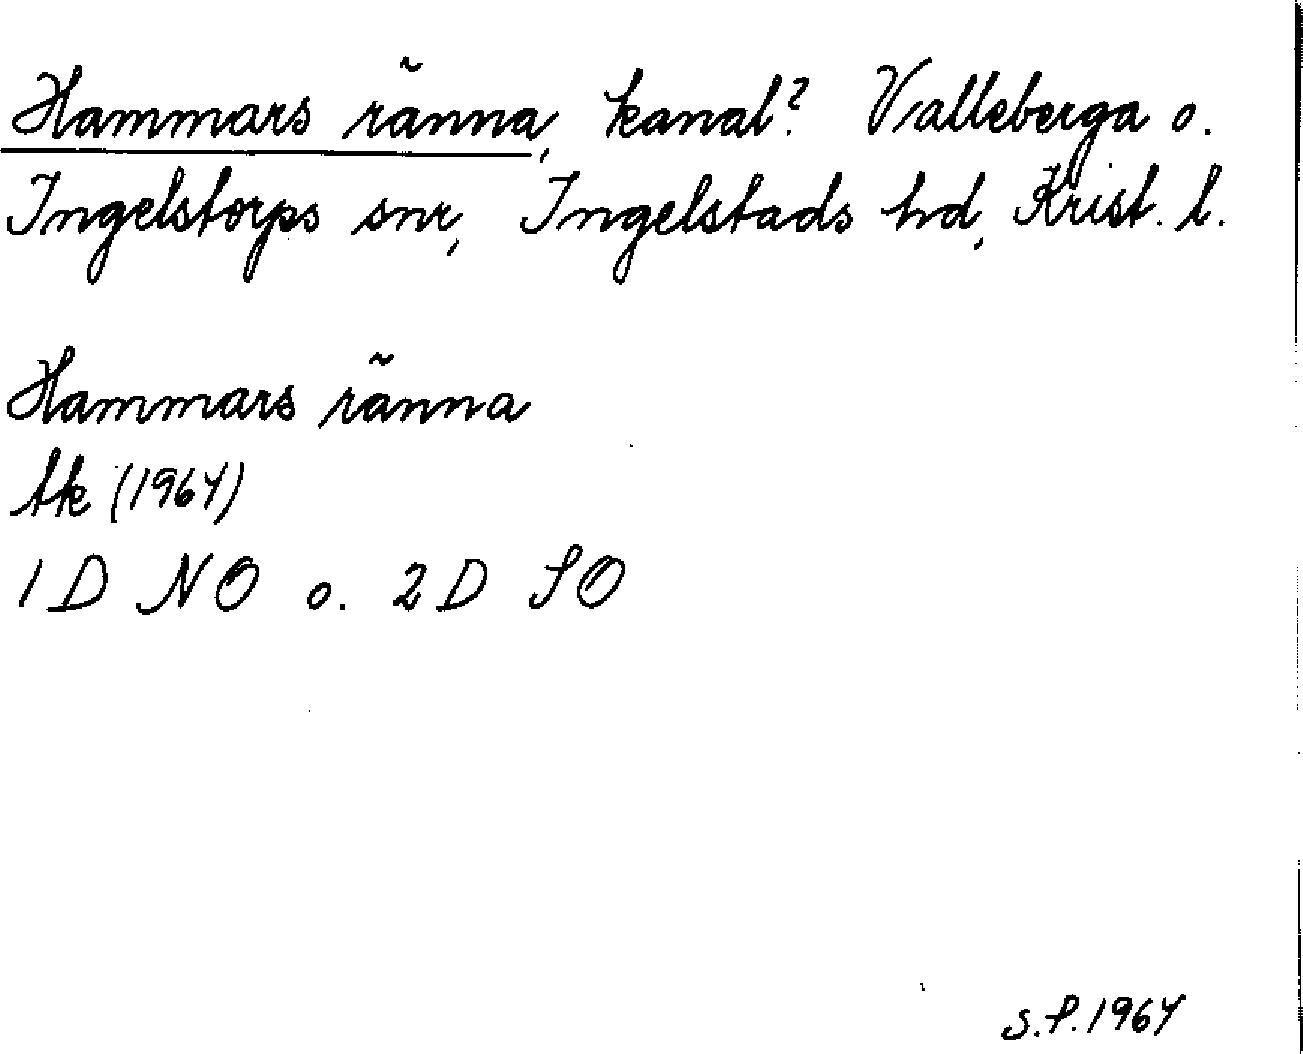 Hammars ränna, kanal? Valleberga o.
Ingelstorps snr, Ingelstads hd, Krist. l.
Hammars ränna
tk (1967)
1D NO o. 2D SO
S.P. 1967